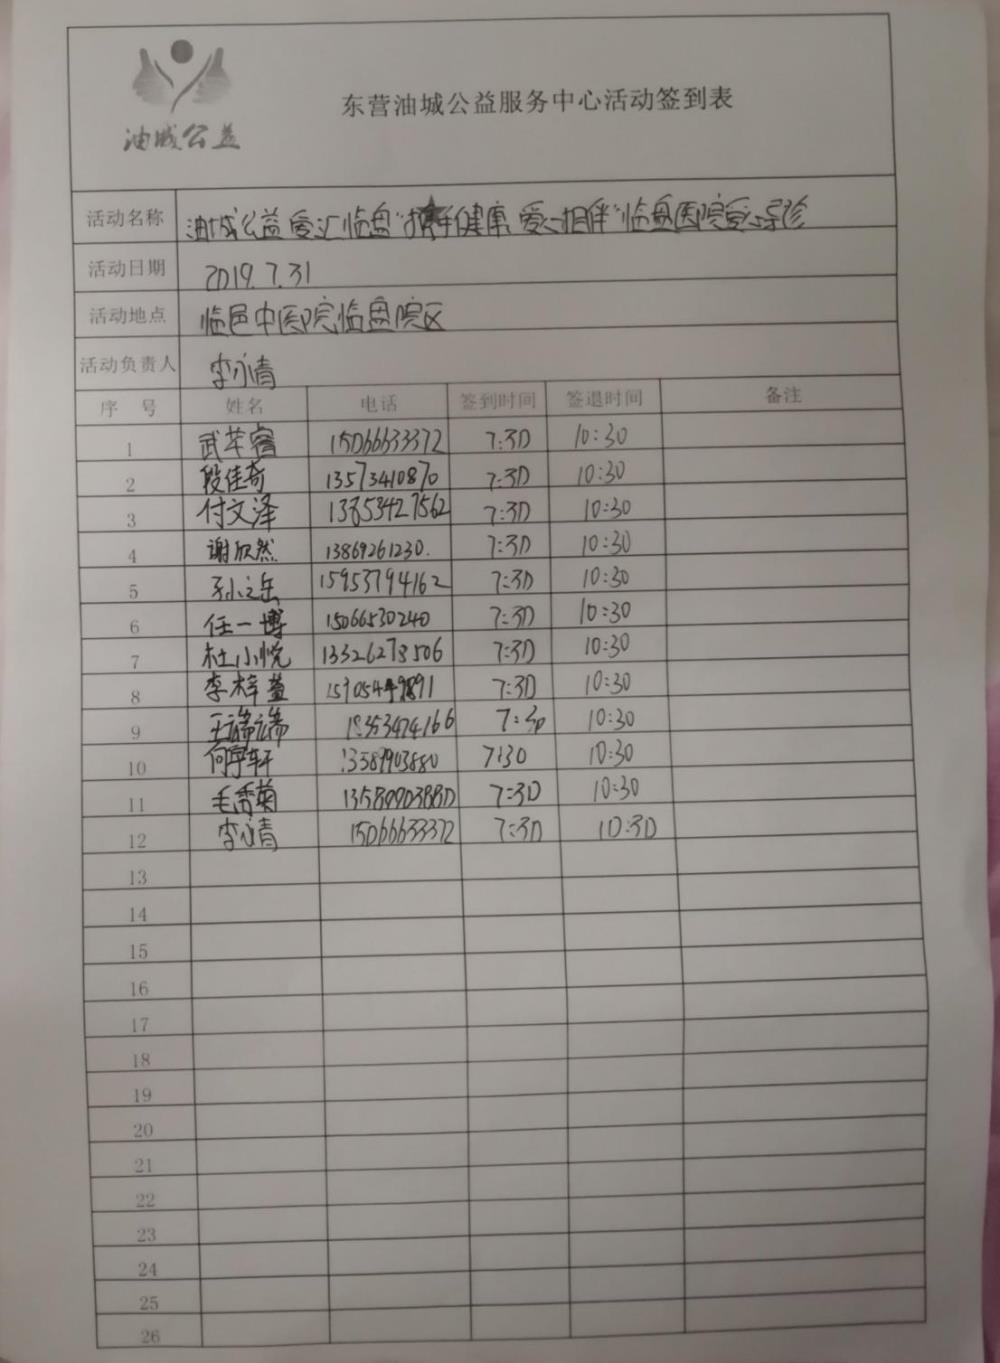 油城公益
东营油城公益服务中心活动签到表
活动名称 油城公益爱汇临盘"携手健康 爱心相伴"临盘医院爱心导诊
活动日期 2019.7.31
活动地点 临邑中医院临盘院区
活动负责人 李永清
序 号 姓名 电话 签到时间 签退时间 备注
1 武华睿 15066633372 7:30 10:30
2 段佳奇 13573410870 7:30 10:30
3 付文泽 13853427562 7:30 10:30
4 谢欣然 13869261230. 7:30 10:30
5 孙之岳 15953794162 7:30 10:30
6 任一博 15066530240 7:30 10:30
7 杜小悦 13326278506 7:30 10:30
8 李梓萱 7:30 10:30
9 王端端 7:30 10:30
10 何宇轩 13589903880 7:30 10:30
11 毛秀菊 13589903880 7:30 10:30
12 李永清 15066633372 7:30 10:30
13
14
15
16
17
18
19
20
21
22
23
24
25
26